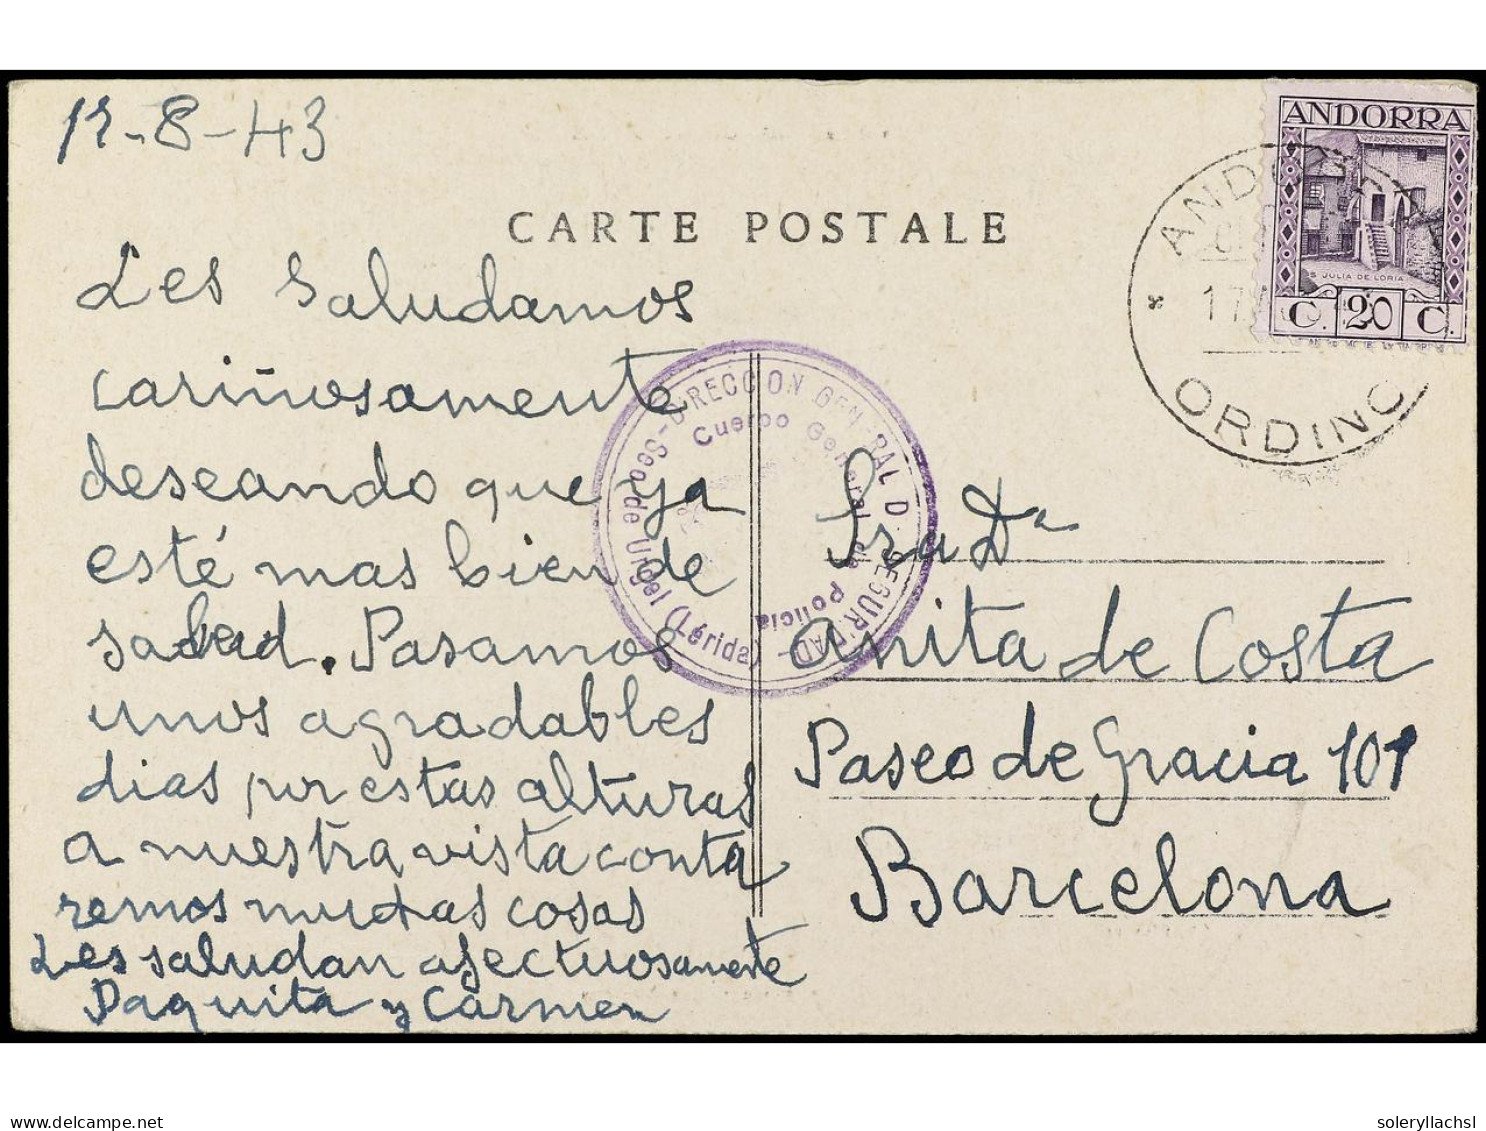 12-8-43
CARTE POSTALE
Les Saludamos
cariñosamente
deseando que ya
esté mas bien de
salud. Pasamos
unos agradables
dias por estas alturas
a nuestra vista conta
remos muchas cosas
Les saludan afectuosamente
Paquita y Carmen
ANDORRA
S JULIA DE LORIA
C. 20 C.
ANDORRA
17
ORDINO
DIRECCION GENERAL D. SEGURIDAD - Seo de Urgel (Lérida) -
Cuerpo General de Policia
Sra Dª
Anita de Costa
Paseo de Gracia 101
Barcelona
delcampe.net
soleryllachsl